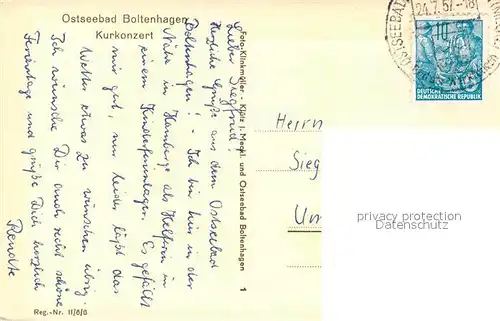 Ostseebad Boltenhagen
Kurkonzert
Lieber Siegfried!
Herzliche Grüße aus dem Ostseebad
Boltenhagen! - Ich bin hier in der
Nähe in Hamberge als Helferin in
einem Kinderferienlager. Es gefällt
mir gut, nur leider läßt das
Wetter etwas zu wünschen übrig.
Ich wünsche Dir noch recht schöne
Ferientage und grüße Dich herzlich
Foto-Klinkmüller - Klütz i. Meckl. und Ostseebad Boltenhagen 1
Reg.-Nr. II/6/6
24.7.57.-18
10
DEUTSCHE
DEMOKRATISCHE REPUBLIK
Herrn
Sieg
Um
privacy protection
Datenschutz